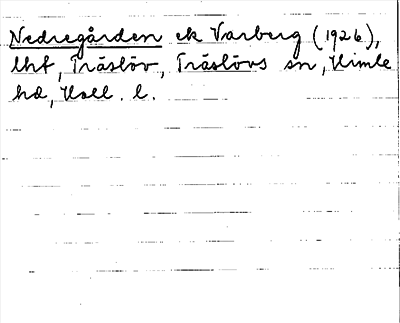 Nedregården ek Varberg (1926),
lht, Träslöv, Träslövs sn, Himle
hd, Hall. l.